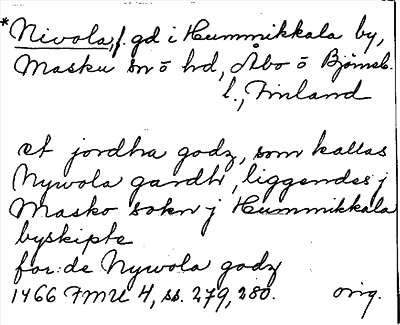 *Nivola, f. gd i Hummikkala by,
Masku sn o hd, Åbo o Björneb.
l., Finland
et jordha godz, som kallas
Nywola gardh, liggendes j
Masko sokn j Hummikkala
byskipte
for:de Nywola godz
1466 FMU 4, ss. 279, 280. orig.